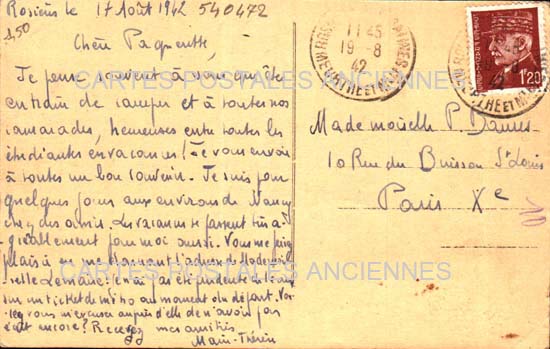 Rosières le 17 Août 1942 540472
1,50
Chère Paquerette,
Je pense souvent à vous qui êtes
en train de camper et à toutes nos
camarades, heureuses entre toutes les
étudiantes en vacances! Je vous envoie
à toutes un bon souvenir. Je suis pour
quelques jours aux environs de Nancy
chez des amis. Les vacances se passent très a-
gréablement pour moi aussi. Vous me feriez
plaisir en me donnant l'adresse de Mademoi-
selle Lemaire: je n'ai pas
sur un ticket de métro au moment du départ. Vou-
lez vous m'excuser auprès d'elle de n'avoir pas
écrit encore? Recevez mes amitiés
Marie-Thérèse
11 45
19-8
42
MEURTHE ET M
1F20
Mademoiselle P. Damés
10 Rue du Buisson St Louis
Paris Xe
10
CARTES POSTALES ANCIENNES
CARTES POSTALES ANCIENNES